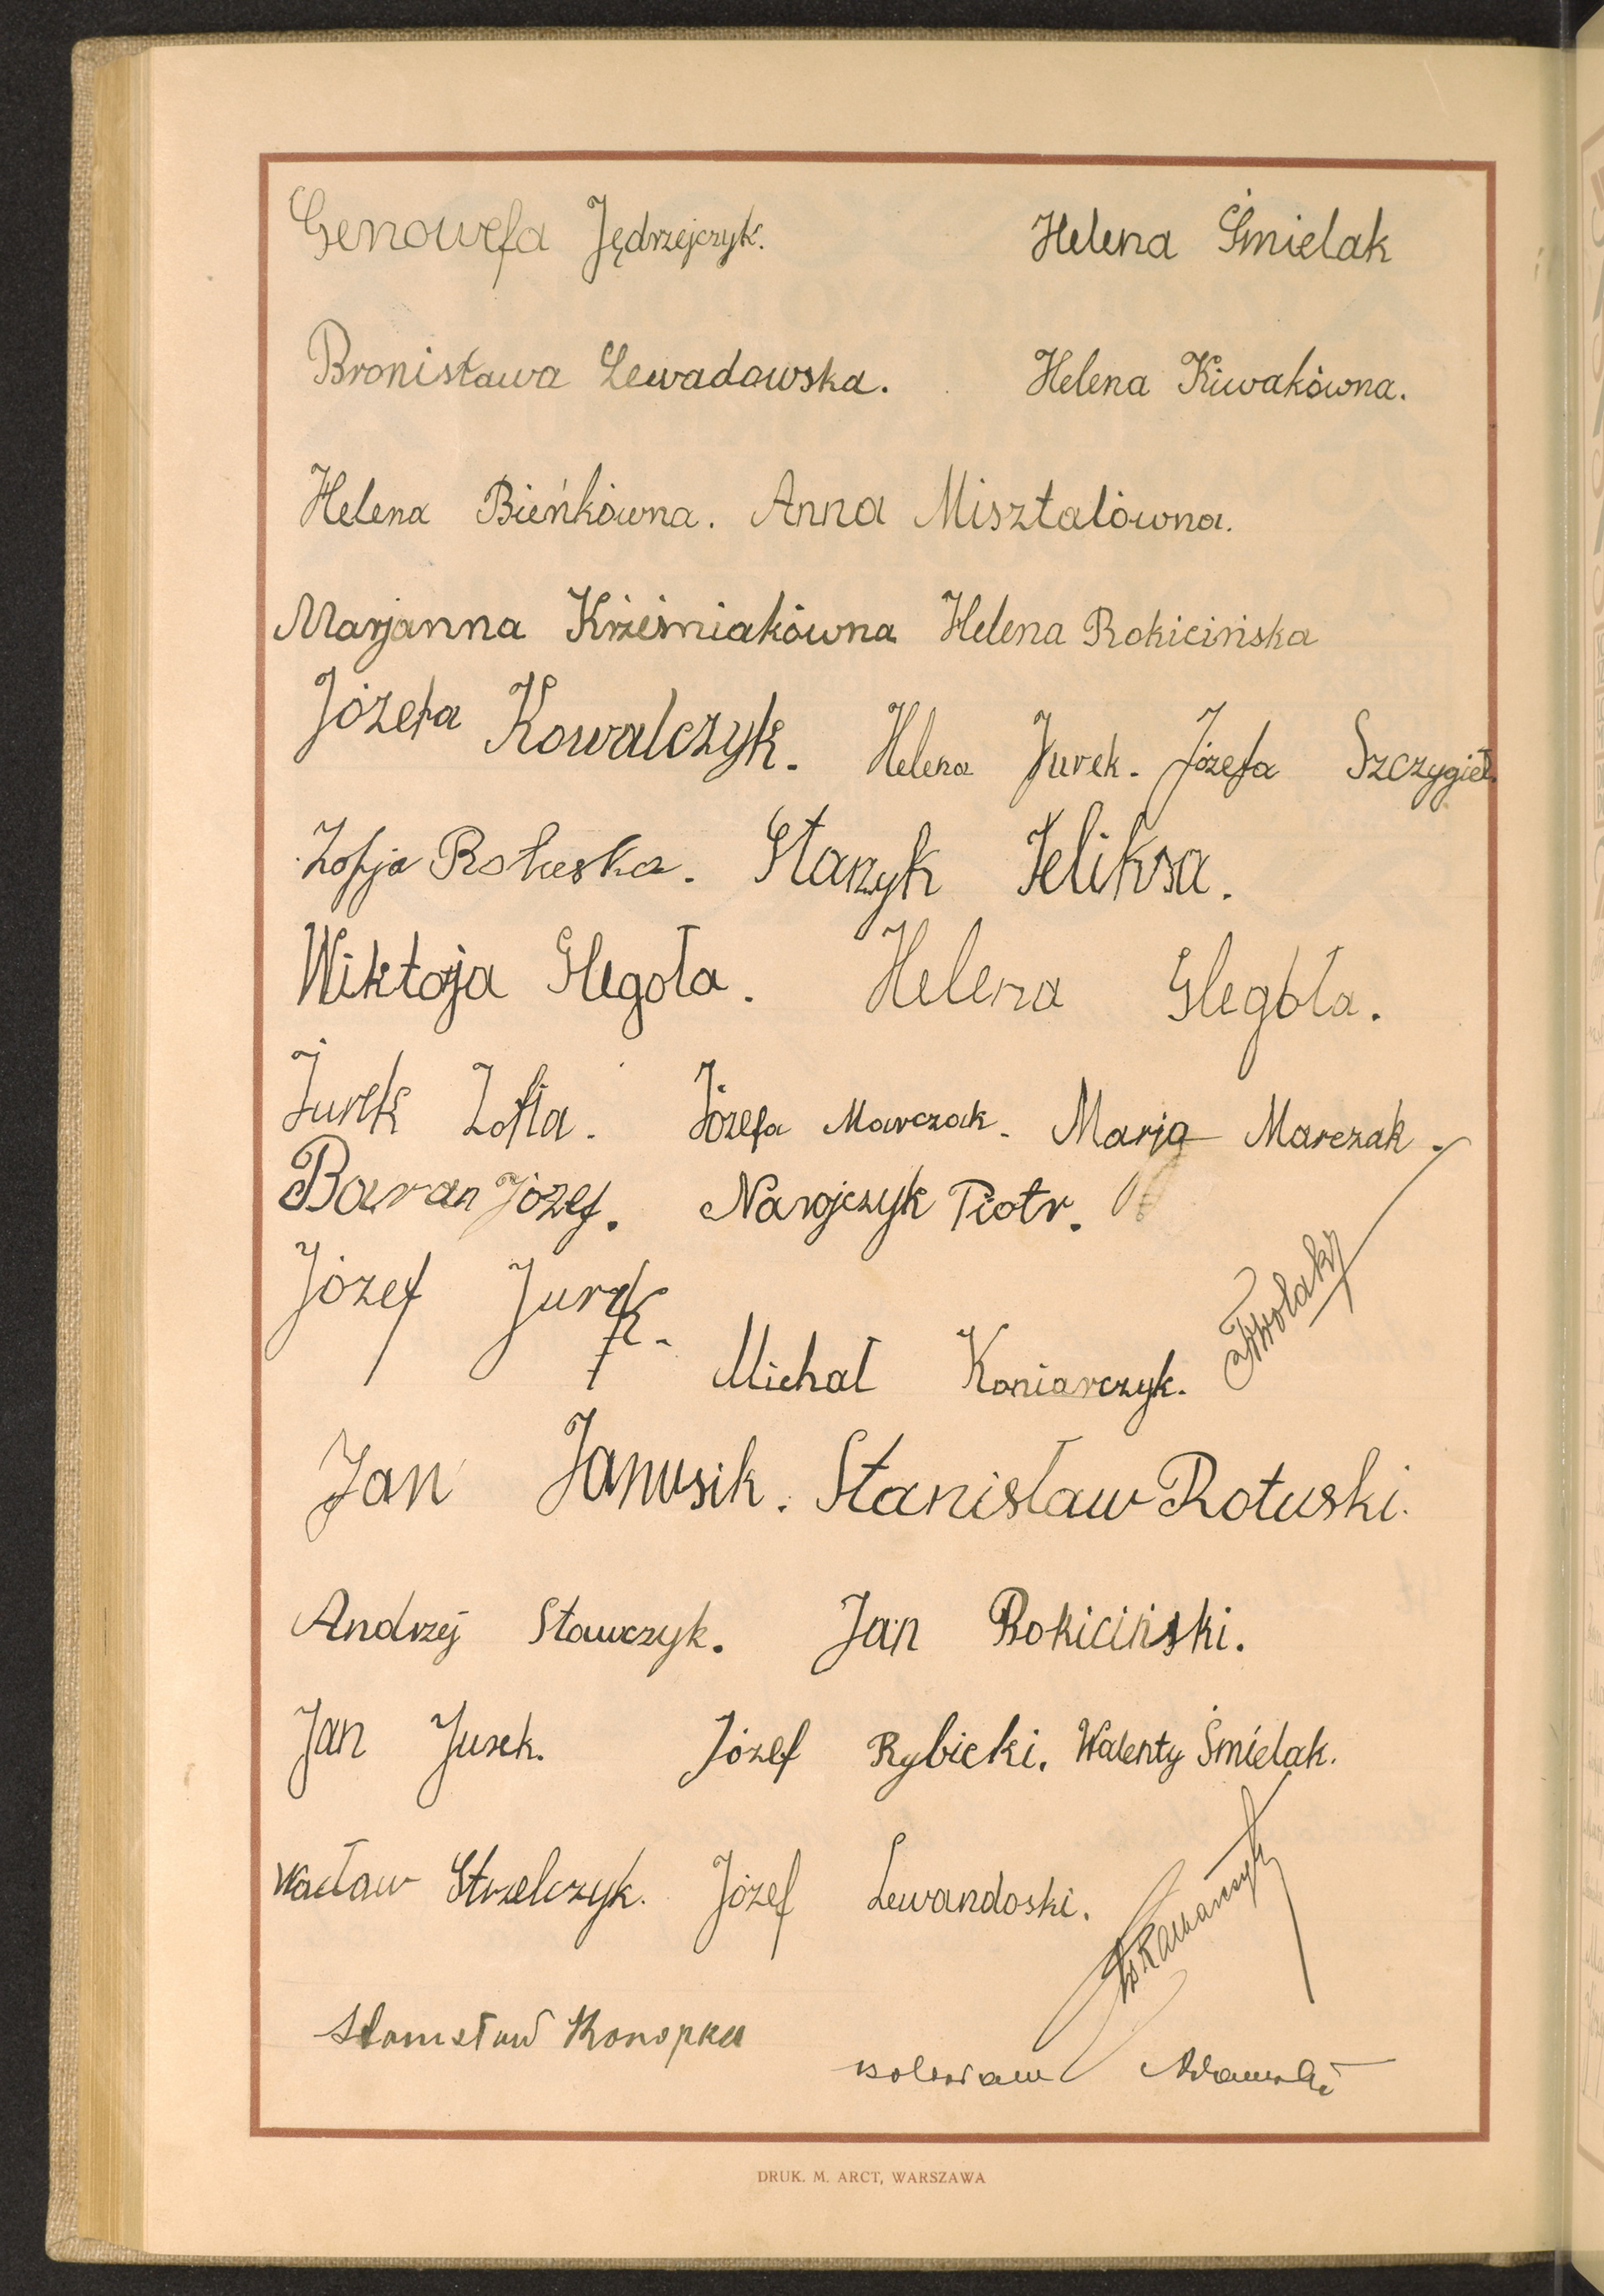 Genowefa Jędrzejczyk. Helena Śmielak
Bronisława Lewadowska. Helena Kiwakówna.
Helena Bieńkówna. Anna Misztalówna.
Marjanna Krześniakówna Helena Rokicińska
Józefa Kowalczyk. Helena Jurek. Józefa Szczygieł.
Zofja Rotuska. Stanzyk Feliksa.
Wiktoja Glegoła. Helena Glegoła.
Jurek Zofia. Józefa Marczak. Marja Marczak.
Baran Józef. Narojczyk Piotr.
Józef Jurek.
Michał Koniarczyk.
Jan Janusik. Stanisław Rotuski.
Andrzej Stawczyk. Jan Rokiciński.
Jan Jurek. Józef Rybicki. Walenty Śmielak.
Wacław Strzelczyk. Józef Lewandoski.
Stanisław Konopka
Adamski
DRUK. M. ARCT, WARSZAWA